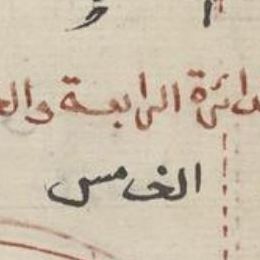 دائرة الرابعة وال
الخامس